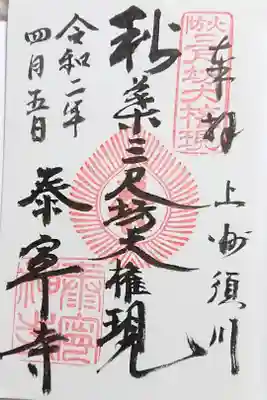 奉拝
上州須川
火防
三尺坊大権現
秋葉三尺坊大権現
泰寧寺
令和二年
四月五日
泰寧禅寺